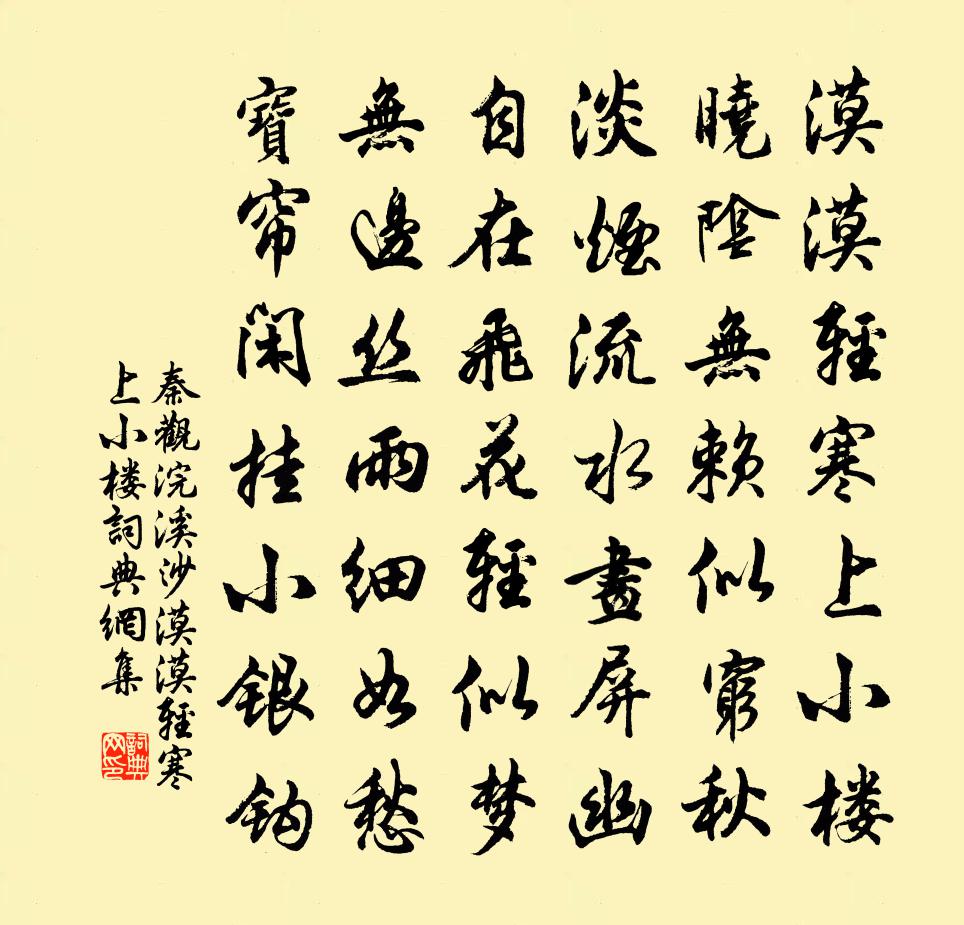 漠漠輕寒上小楼
曉陰無赖似窮秋
淡煙流水畫屏幽
自在飛花輕似梦
無邊丝雨细如愁
寶帘闲挂小银钩
秦觀浣溪沙漠漠輕寒
上小楼詞典網集
詞典
网印